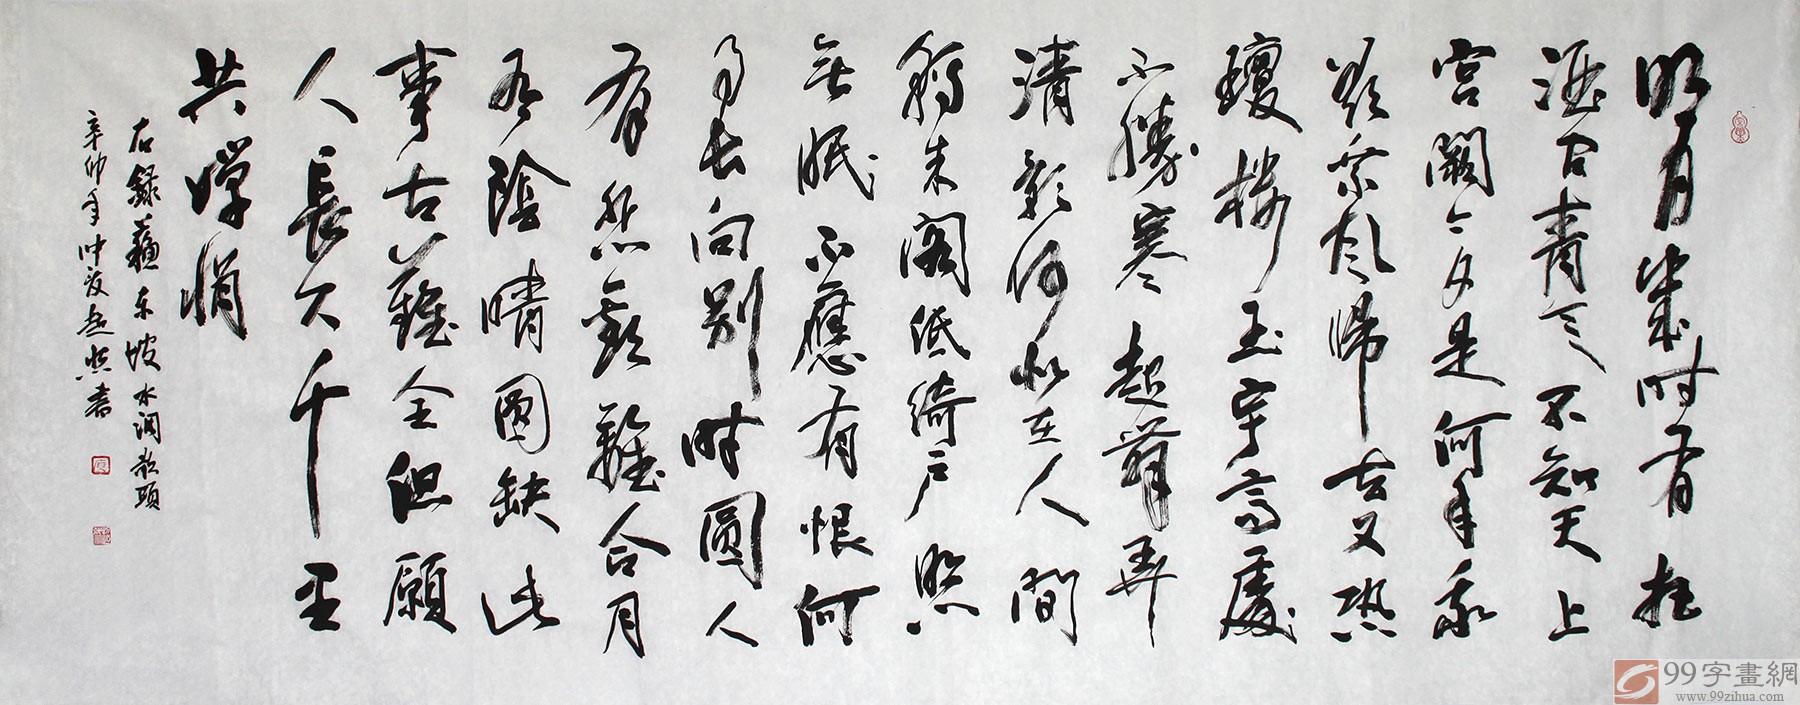 明月幾时有把
酒问青天不知天上
宮闕今夕是何年我
欲乘风歸去又恐
瓊楼玉宇高處
不勝寒起舞弄
清影何似在人间
转朱阁低绮户照
无眠不應有恨何
事长向别时圓人
有悲歡難合月
有陰晴圓缺此
事古難全但願
人長久千里
共嬋娟
右錄蘇东坡水调歌頭
辛卯年仲夏书
99字畫網
www.99zihua.com